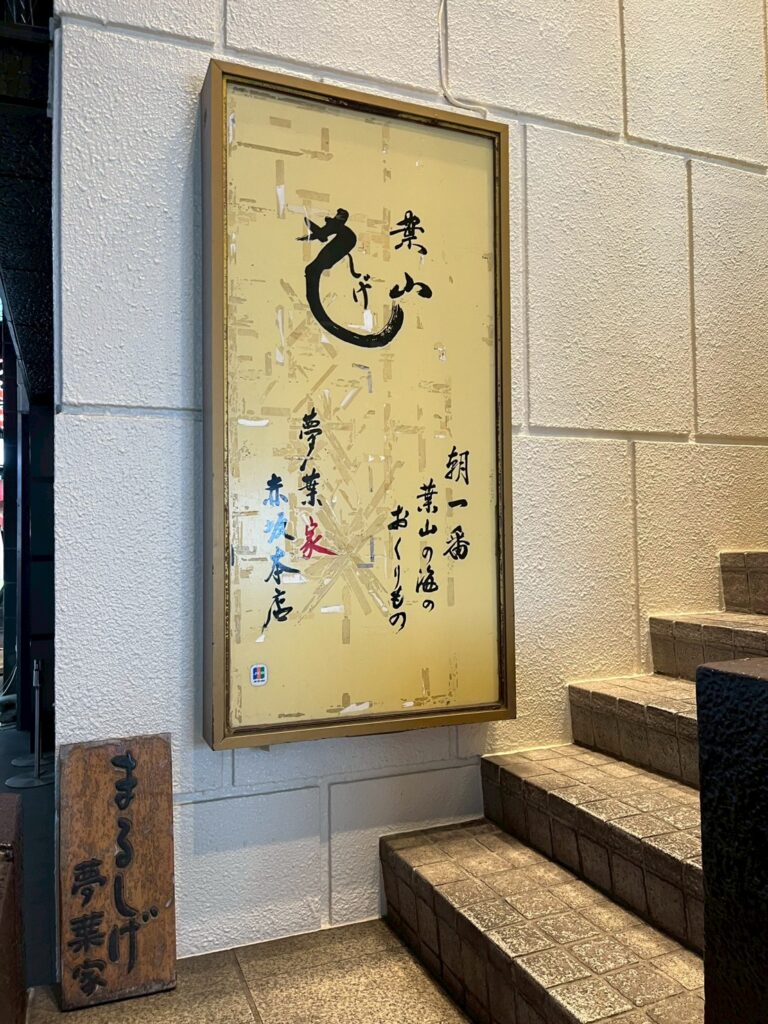 葉山
しげ
朝一番
葉山の海の
おくりもの
夢葉家
赤坂本店
まるしげ
夢葉家